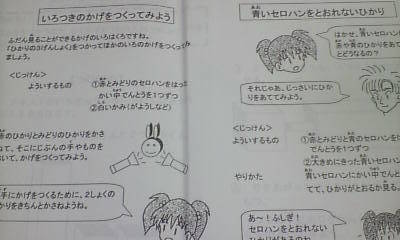 いろつきのかげをつくってみよう
ふだん見ることができるかげのいろはくろですね。
「ひかりの3げんしょく」をつかってほかのいろのかげをつくってみ
ましょう。
<じっけん>
よういするもの ①赤とみどりのセロハンをはっ
かい中でんとうを1つずつ
②白いかみ(がようしなど)
のひかりとみどりのひかりをかさ
て、そこにじぶんの手やものを
いて、かげをつくってみよう。
手にかげをつくるために、2しょくの
かりをきちんとかさねようね。
青いセロハンをとおれないひかり
はかせ、青いセロハン
赤や青のひかりをあて
とどうなるの?
それじゃあ、じっさいにひかり
をあててみよう。
<じっけん>
よういするもの ①赤と青のセロハンを
でんとうを1つずつ
②大きめにきった青いセロハン
やりかた 青いセロハンにかい中でんと
てて、ひかりがとおるか見る。
あ〜!ふしぎ!
セロハンをとおれない